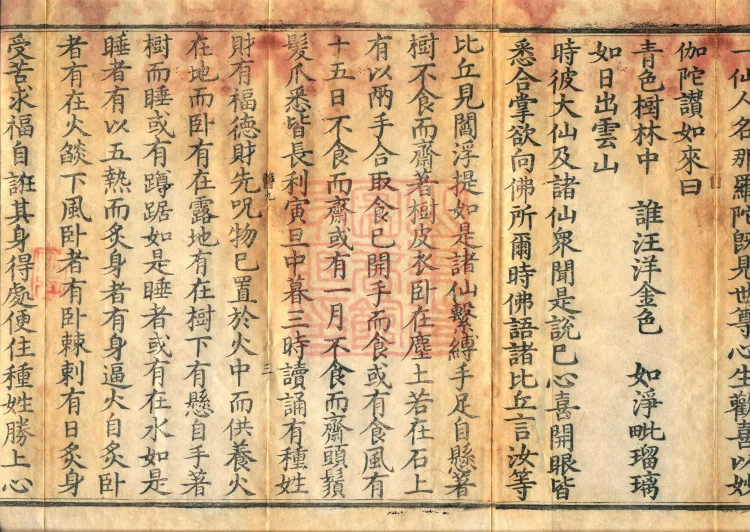 一仙人名那羅陀既見世尊心生歡喜以妙
伽陀讃如來曰
青色樹林中　誰汪洋金色　如淨毗瑠璃
如日出雲山
時彼大仙及諸仙衆聞是說已心喜開眼皆
悉合掌欲向佛所爾時佛語諸比丘言汝等
比丘見閻浮提如是諸仙繫縛手足自懸著
樹不食而齋著樹皮衣卧在塵土若在石上
有以兩手合取食已開手而食或有食風有
十五日不食而齋或有一月不食而齋頭鬚
髮爪悉皆長利寅旦中暮三時讀誦有種姓
雜九
三
財有福德財先呪物已置於火中而供養火
在地而卧有在露地有在樹下有懸自手著
樹而睡或有蹲踞如是睡者或有在水如是
睡者有以五熱而炙身者有身逼火自炙卧
者有在火燄下風卧者有卧棘刺有日炙身
受苦求福自誑其身得處便住種姓勝上心